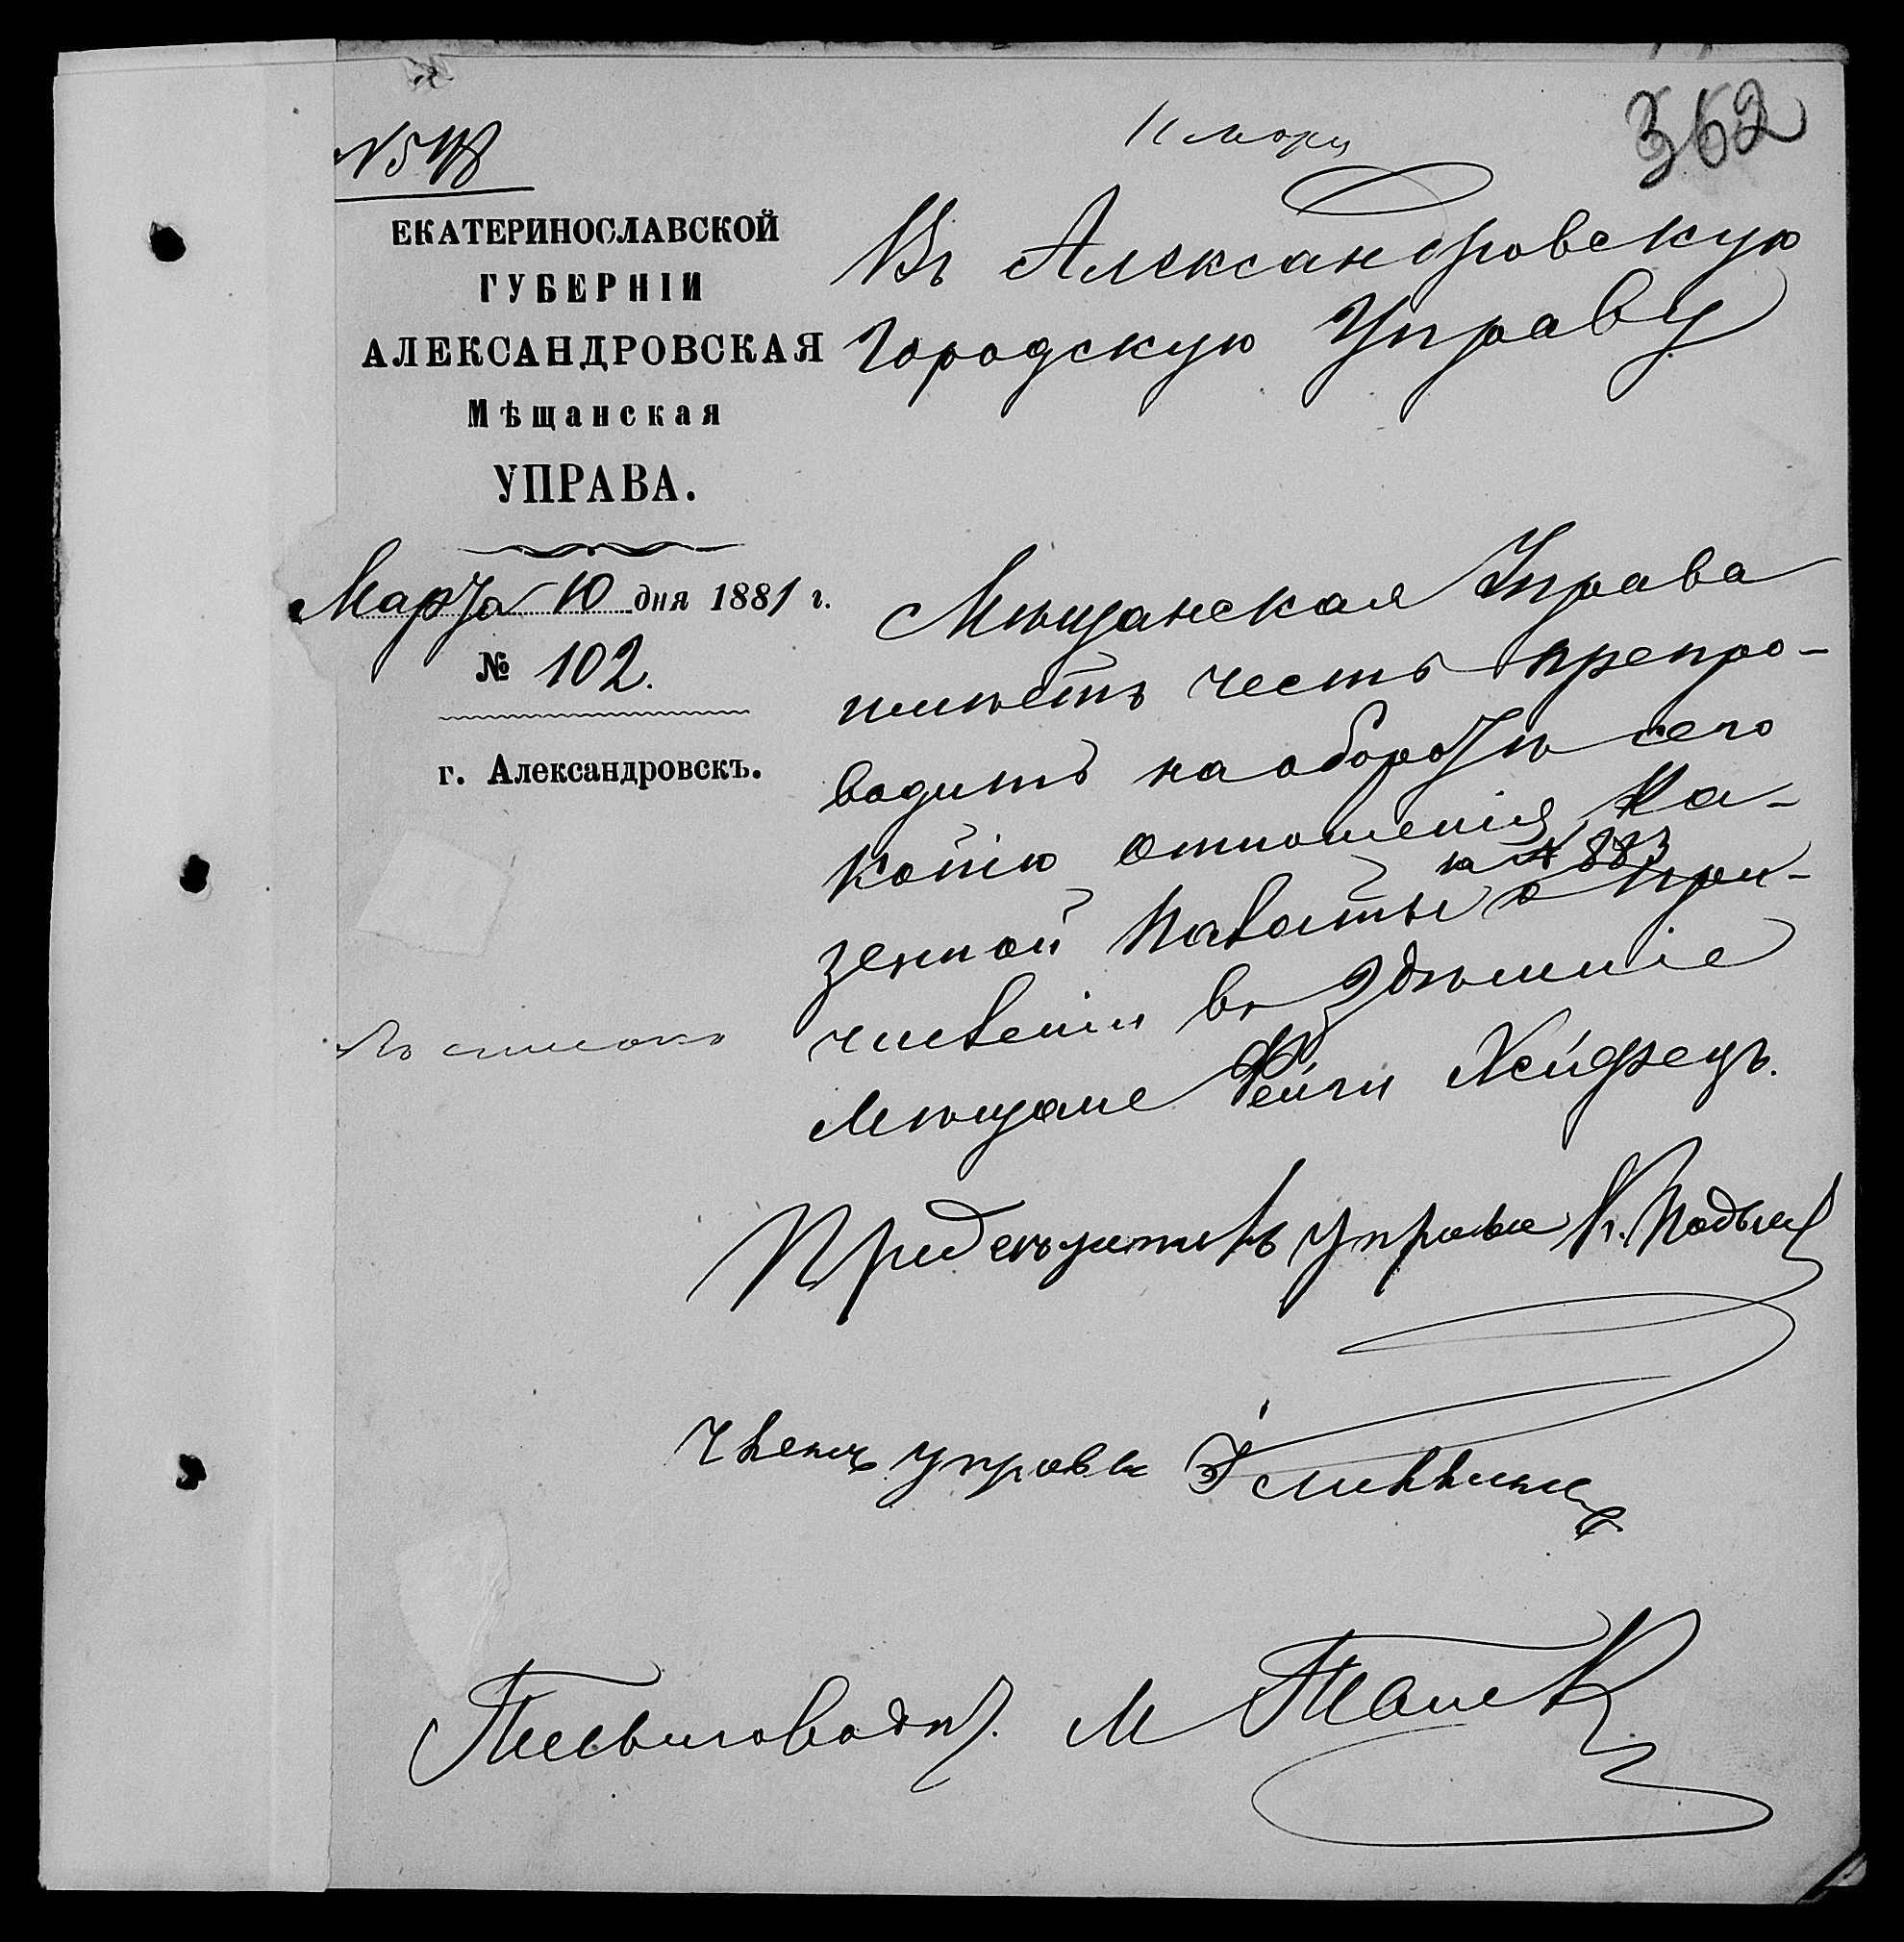 362
11 марц
№ 548
ЕКАТЕРИНОСЛАВСКОЙ
ГУБЕРНІИ
АЛЕКСАНДРОВСКАЯ
Мѣщанская
УПРАВА.
Марта 10 дня 1881 г.
№ 102.
г. Александровскъ.
Въ Александровскую
Городскую Управу
Мѣщанская Управа
имѣетъ честь препро-
водить на оборотѣ сего
копію отношенія Ка-
за № 883
зенной Палаты о при-
численіи въ здѣшніе
мѣщане Фейги Хейфецъ.
Къ списку
Предсѣдатель управы К.
Членъ управы
Письмоводит. М